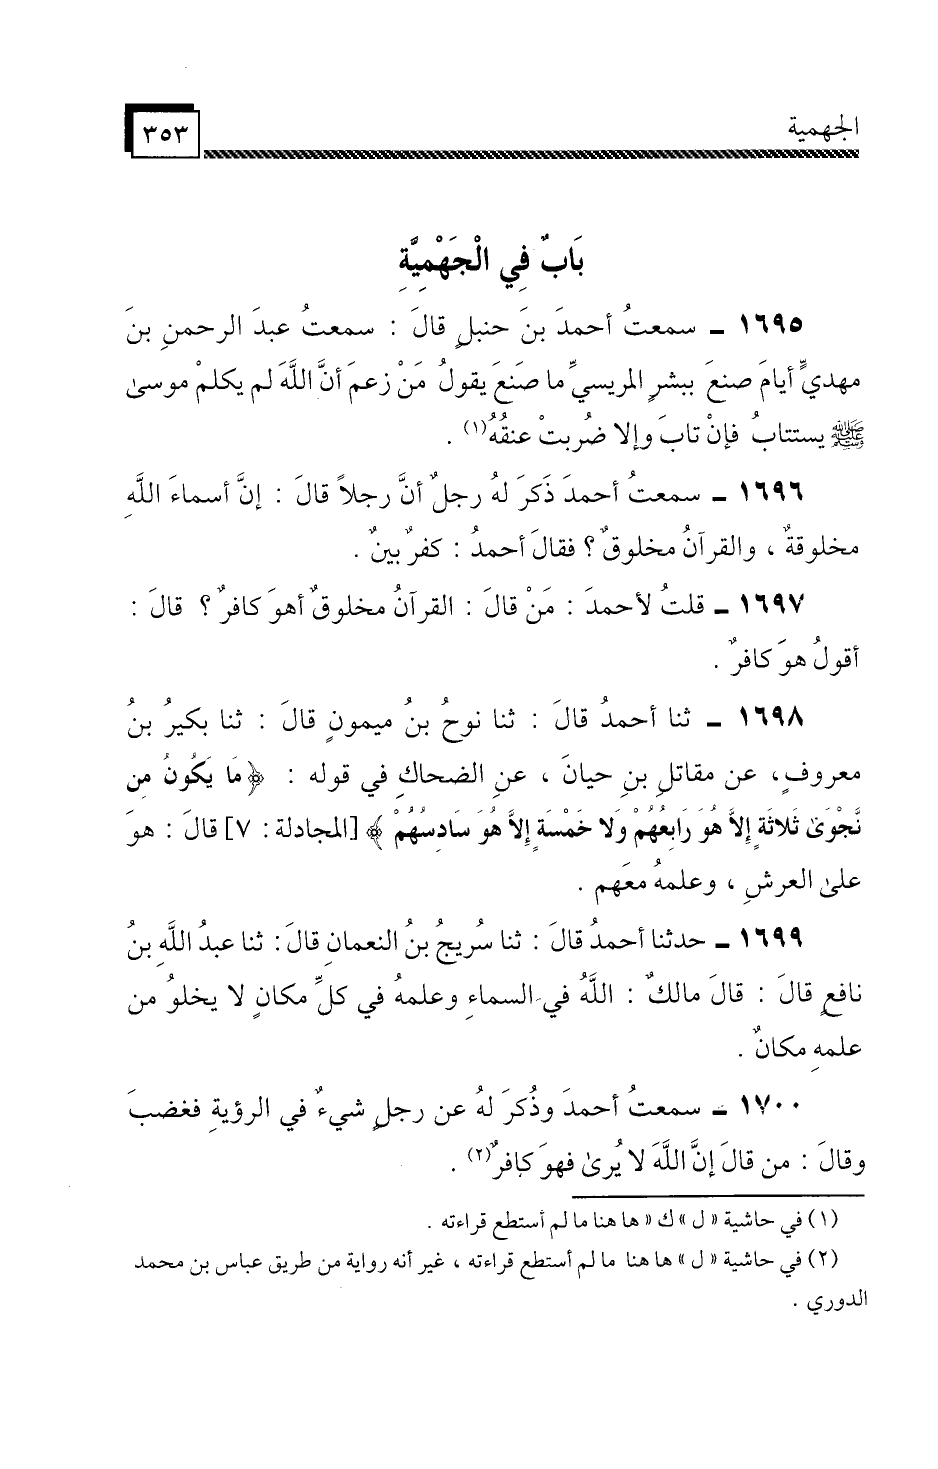 الجهمية
٣٥٣
بَابٌ فِي الْجَهْمِيَّةِ
١٦٩٥ ـ سمعتُ أحمدَ بنَ حنبلٍ قالَ : سمعتُ عبدَ الرحمنِ بنَ
مهديٍّ أيامَ صنعَ ببشرٍ المريسيِّ ما صنَعَ يقولُ مَنْ زعمَ أنَّ اللَّهَ لم يكلمْ موسىٰ
ﷺ يستتابُ فإنْ تابَ وإلا ضُربتْ عنقُهُ(١) .
١٦٩٦ ـ سمعتُ أحمدَ ذَكرَ لهُ رجلٌ أنَّ رجلاً قالَ : إنَّ أسماءَ اللَّهِ
مخلوقةٌ ، والقرآنُ مخلوقٌ ؟ فقالَ أحمدُ : كفرٌ بينٌ .
١٦٩٧ ـ قلتُ لأحمدَ : مَنْ قالَ : القرآنُ مخلوقٌ أهوَ كافرٌ ؟ قالَ :
أقولُ هوَ كافرٌ .
١٦٩٨ ـ ثنا أحمدُ قالَ : ثنا نوحُ بنُ ميمونٍ قالَ : ثنا بكيرُ بنُ
معروفٍ ، عن مقاتلِ بنِ حيانَ ، عنِ الضحاكِ في قوله : ﴿ مَا يَكُونُ مِن
نَّجْوَىٰ ثَلاثَةٍ إِلاَّ هُوَ رَابِعُهُمْ وَلا خَمْسَةٍ إِلاَّ هُوَ سَادِسُهُمْ ﴾ [المجادلة : ٧] قالَ : هوَ
علىٰ العرشِ ، وعلمهُ معَهم .
١٦٩٩ ـ حدثنا أحمدُ قالَ : ثنا سُريجُ بنُ النعمانِ قالَ : ثنا عبدُ اللَّهِ بنُ
نافعٍ قالَ : قالَ مالكٌ : اللَّهُ في السماءِ وعلمهُ في كلِّ مكانٍ لا يخلوُ من
علمهِ مكانٌ .
١٧٠٠ ـ سمعتُ أحمدَ وذُكرَ لهُ عن رجلٍ شيءٌ في الرؤيةِ فغضبَ
وقالَ : من قالَ إنَّ اللَّهَ لا يُرىٰ فهوَ كافرٌ(٢) .
(١) في حاشية « ل » ك « ها هنا ما لم أستطع قراءته .
(٢) في حاشية « ل » ها هنا ما لم أستطع قراءته ، غير أنه رواية من طريق عباس بن محمد
الدوري .